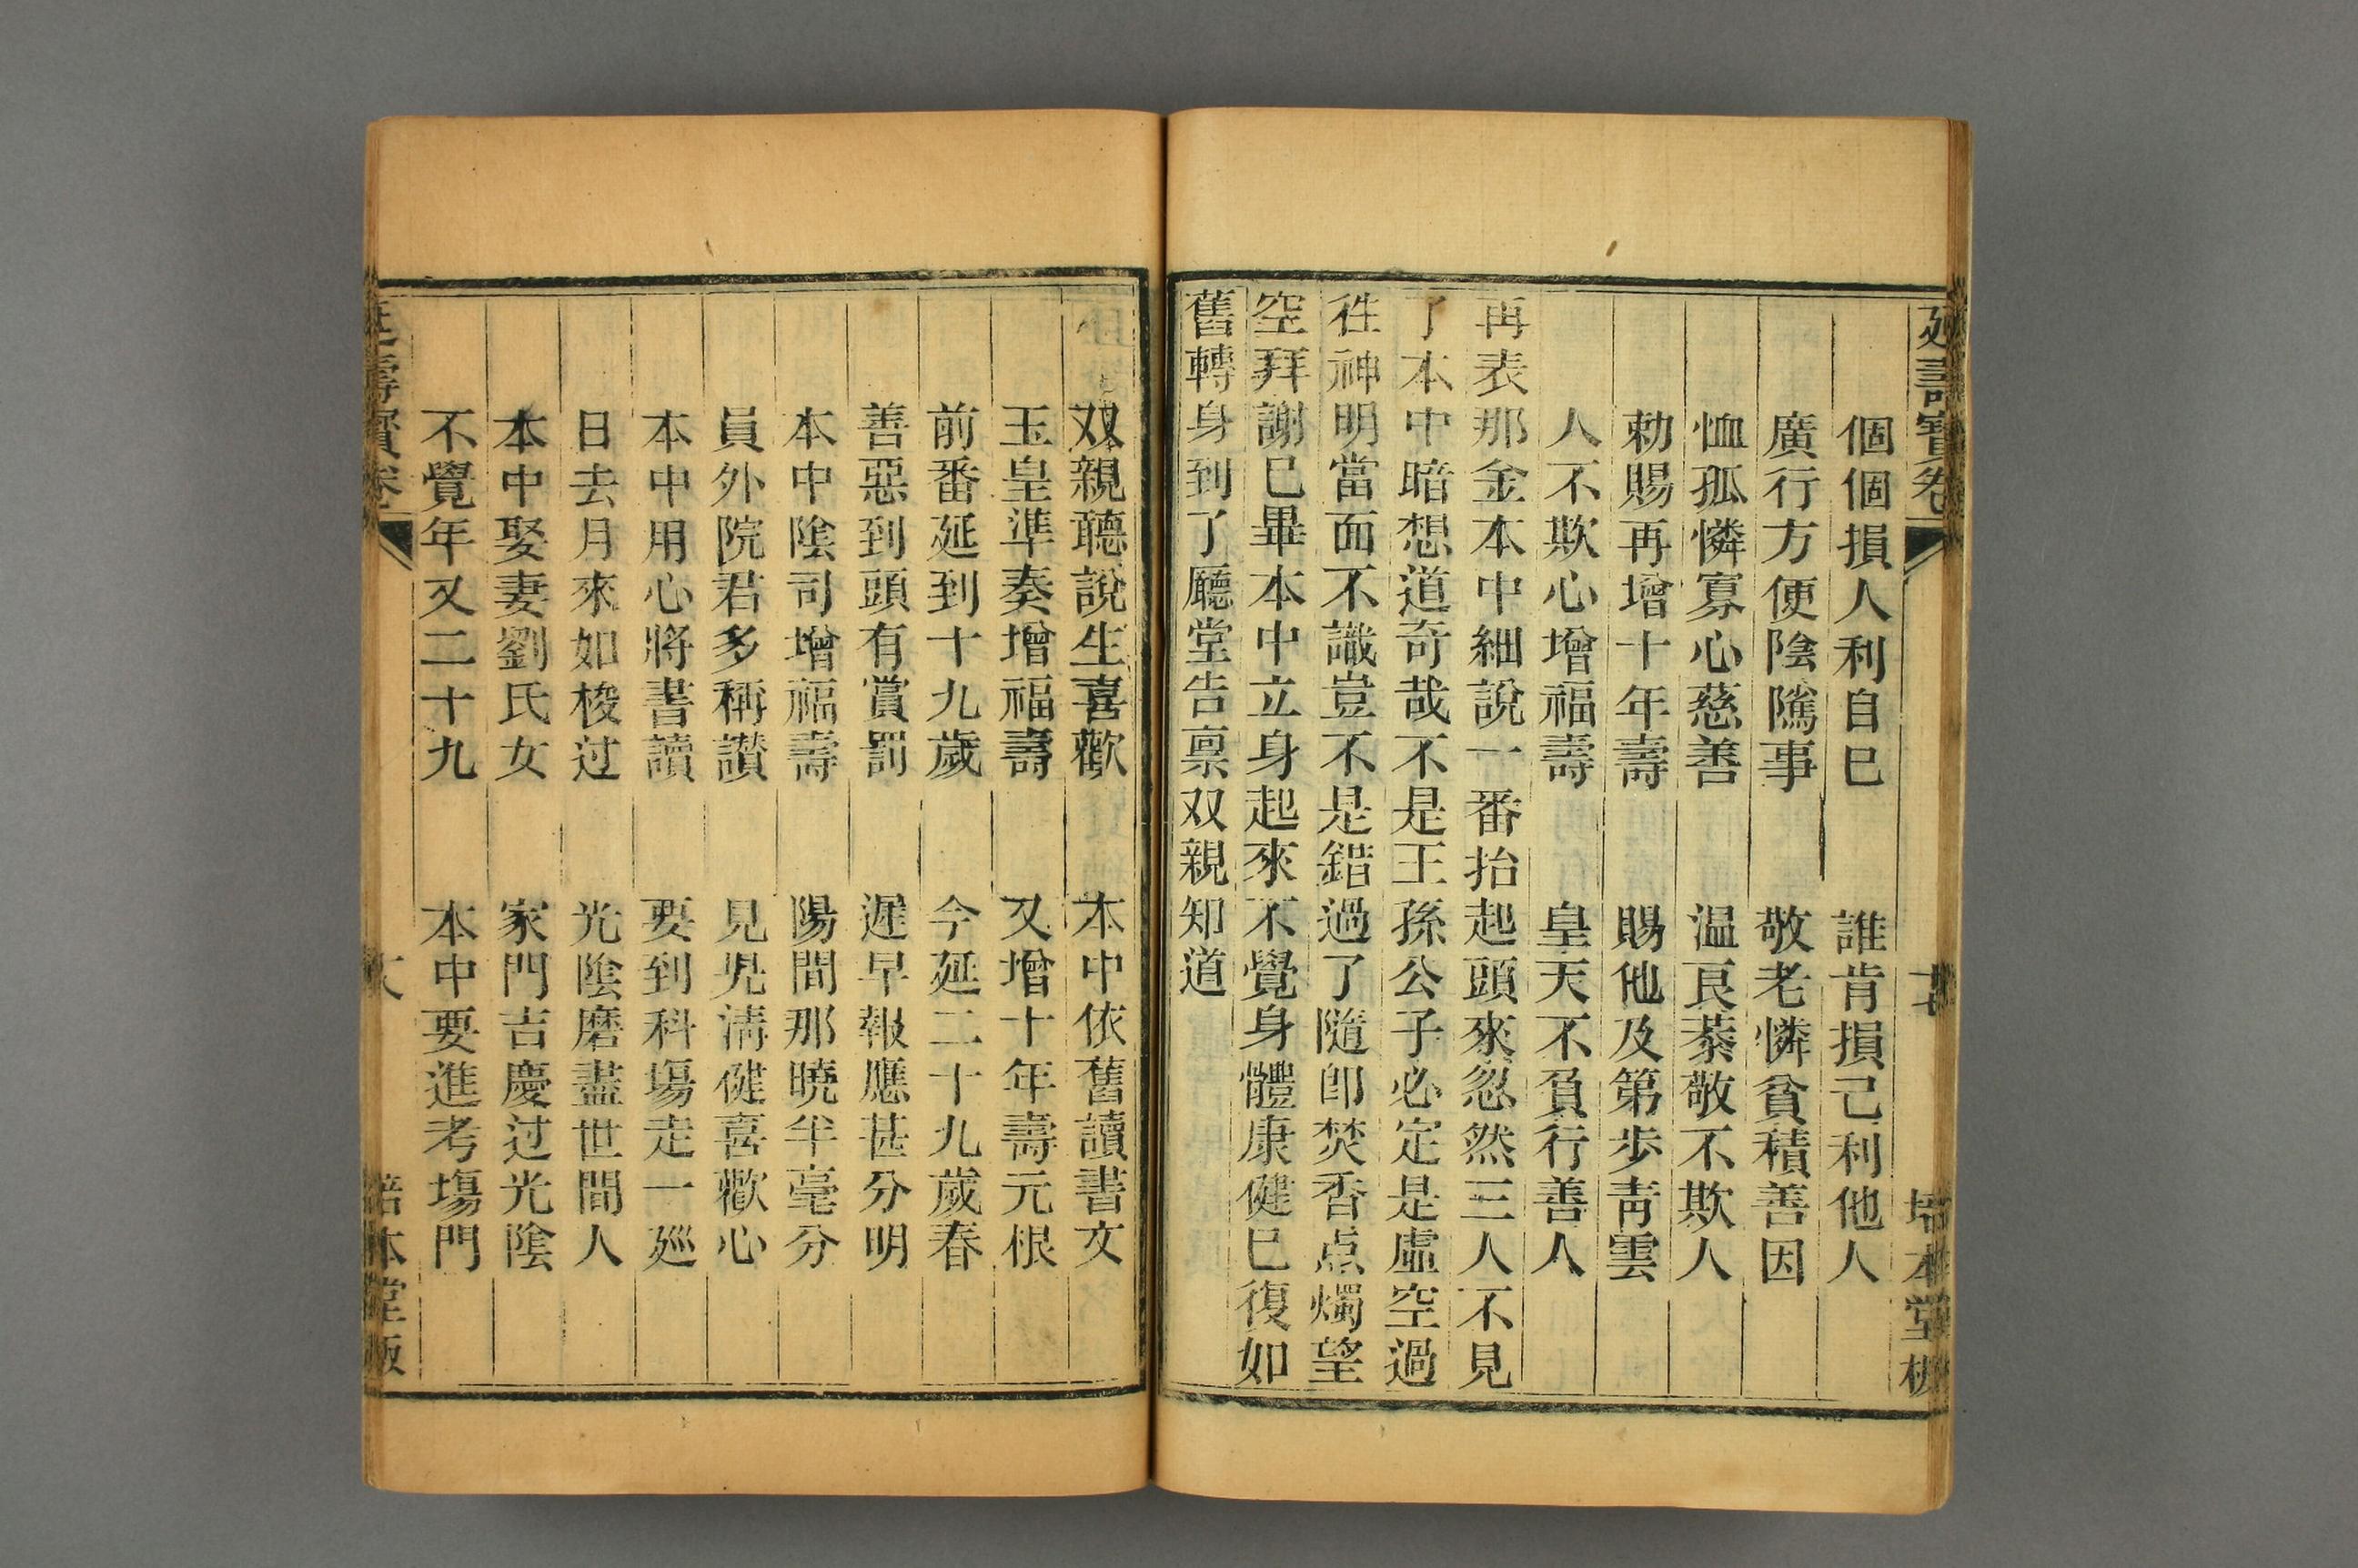 延壽寶卷
培本堂板
個個損人利自巳 誰肯損己利他人
廣行方便陰隲事 敬老憐貧積善因
恤孤憐寡心慈善 温良恭敬不欺人
勅賜再增十年壽 賜他及第步靑雲
人不欺心增福壽 皇天不負行善人
再表那金本中細說一番抬起頭來忽然三人不見
了本中暗想道奇哉不是王孫公子必定是虛空過
徃神明當面不識豈不是錯過了隨卽焚香点燭望
空拜謝巳畢本中立身起來不覺身體康健巳復如
舊轉身到了廳堂告禀双親知道
双親聽說生喜歡 本中依舊讀書文
玉皇準奏增福壽 又增十年壽元根
前番延到十九歲 今延二十九歲春
善惡到頭有賞罰 遲早報應甚分明
本中陰司增福壽 陽間那曉半毫分
員外院君多稱讚 見児淸健喜歡心
本中用心將書讀 要到科塲走一廵
日去月來如梭过 光陰磨盡世間人
本中娶妻劉氏女 家門吉慶过光陰
不覺年又二十九 本中要進考塲門
延壽寶卷
培本堂板